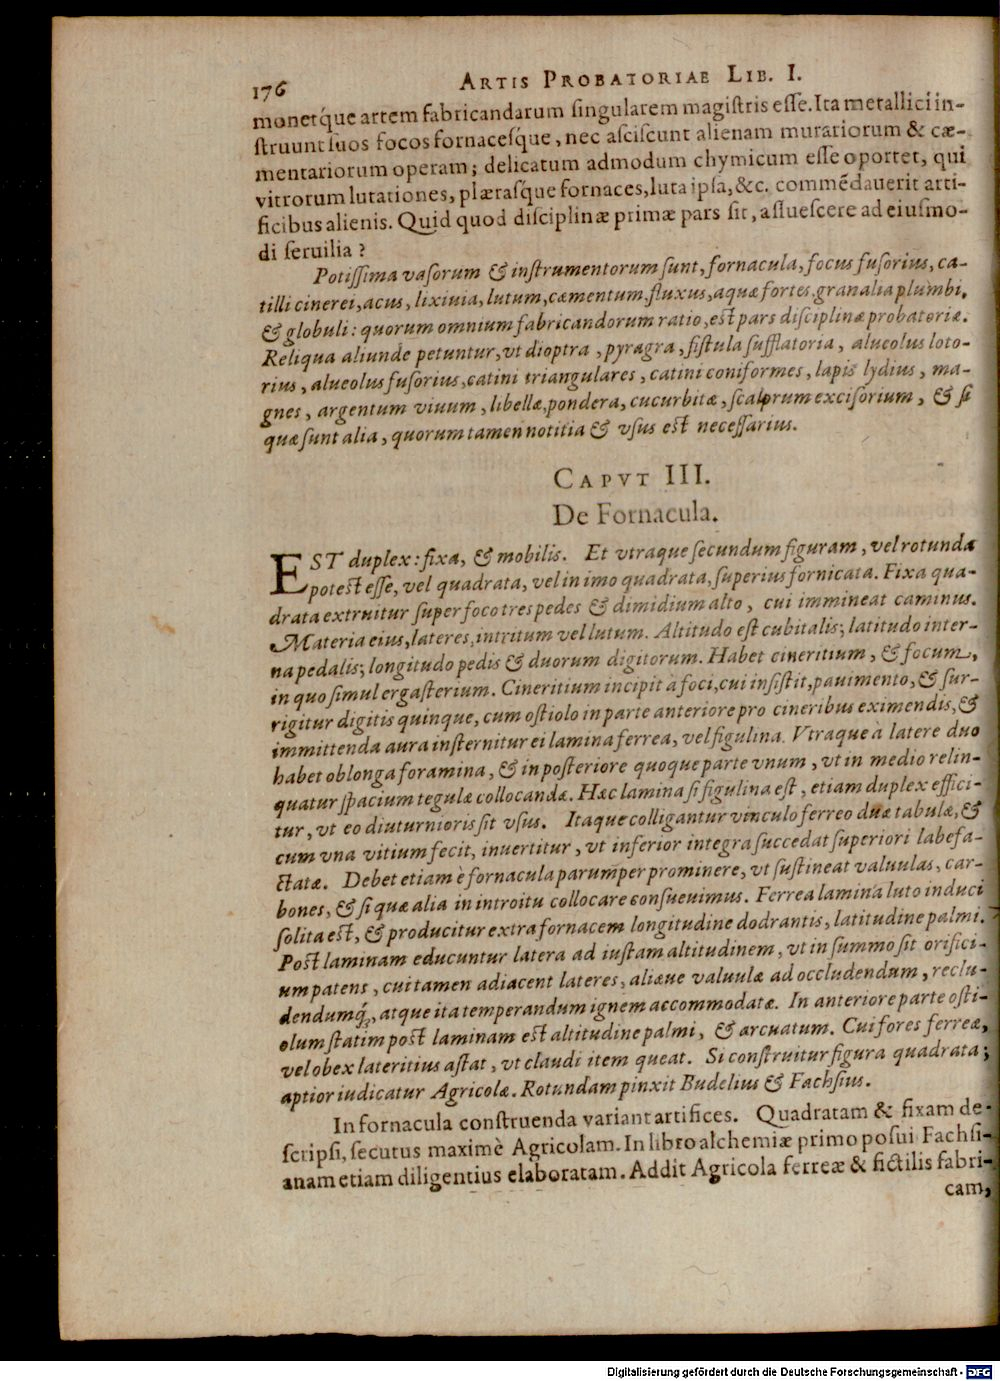 176 ARTIS PROBATORIAE LIB. I.
monetq́ue artem fabricandarum ſingularem magiſtris eſſe. Ita metallici in-
ſtruunt ſuos focos fornaceſque, nec aſciſcunt alienam murariorum & cæ-
mentariorum operam; delicatum admodum chymicum eſſe oportet, qui
vitrorum lutationes, plæraſque fornaces, luta ipſa, &c. commēdauerit arti-
ficibus alienis. Quid quod diſciplinæ primæ pars ſit, aſſueſcere ad eiuſmo-
di ſeruilia?
Potiſſima vaſorum & inſtrumentorum ſunt, fornacula, focus fuſorius, ca-
tilli cinerei, acus, lixiuia, lutum, cæmentum, fluxus, aquæ fortes, granalia plumbi,
& globuli: quorum omnium fabricandorum ratio, eſt pars diſciplinæ probatoriæ.
Reliqua aliunde petuntur, vt dioptra, pyragra, fiſtula ſufflatoria, alueolus loto-
rius, alueolus fuſorius, catini triangulares, catini coniformes, lapis lydius, ma-
gnes, argentum viuum, libellæ, pondera, cucurbitæ, ſcalprum exciſorium, & ſi
quæ ſunt alia, quorum tamen notitia & vſus eſt neceſſarius.
CAPVT III.
De Fornacula.
EST duplex: fixa, & mobilis. Et vtraque ſecundum figuram, vel rotunda
poteſt eſſe, vel quadrata, vel in imo quadrata, ſuperius fornicata. Fixa qua-
drata extruitur ſuper foco tres pedes & dimidium alto, cui immineat caminus.
Materia eius, lateres, intritum vel lutum. Altitudo eſt cubitalis; latitudo inter-
na pedalis; longitudo pedis & duorum digitorum. Habet cineritium, & focum,
in quo ſimul ergaſterium. Cineritium incipit à foci, cui inſiſtit, pauimento, & ſur-
rigitur digitis quinque, cum oſtiolo in parte anteriore pro cineribus eximendis, &
immittenda aura inſternitur ei lamina ferrea, vel figulina. Vtraque à latere duo
habet oblonga foramina, & in poſteriore quoque parte vnum, vt in medio relin-
quatur ſpacium tegulæ collocandæ. Hæc lamina ſi figulina eſt, etiam duplex effici-
tur, vt eo diuturnioris ſit vſus. Itaque colligantur vinculo ferreo duæ tabulæ, &
cum vna vitium fecit, inuertitur, vt inferior integra ſuccedat ſuperiori labefa-
ctatæ. Debet etiam è fornacula parumper prominere, vt ſuſtineat valuulas, car-
bones, & ſi quæ alia in introitu collocare conſueuimus. Ferrea lamina luto induci
ſolita eſt, & producitur extra fornacem longitudine dodrantis, latitudine palmi.
Poſt laminam educuntur latera ad iuſtam altitudinem, vt in ſummo ſit orifici-
um patens, cui tamen adiacent lateres, aliæue valuulæ ad occludendum, reclu-
dendumq́;, atque ita temperandum ignem accommodatæ. In anteriore parte oſti-
olum ſtatim poſt laminam eſt altitudine palmi, & arcuatum. Cui fores ferreæ,
vel obex lateritius aſtat, vt claudi item queat. Si conſtruitur figura quadrata;
aptior iudicatur Agricolæ. Rotundam pinxit Budelius & Fachſius.
In fornacula conſtruenda variant artifices. Quadratam & fixam de-
ſcripſi, ſecutus maximè Agricolam. In libro alchemiæ primo poſui Fachſi-
anam etiam diligentius elaboratam. Addit Agricola ferreæ & fictilis fabri-
cam,
Digitalisierung gefördert durch die Deutsche Forschungsgemeinschaft - DFG